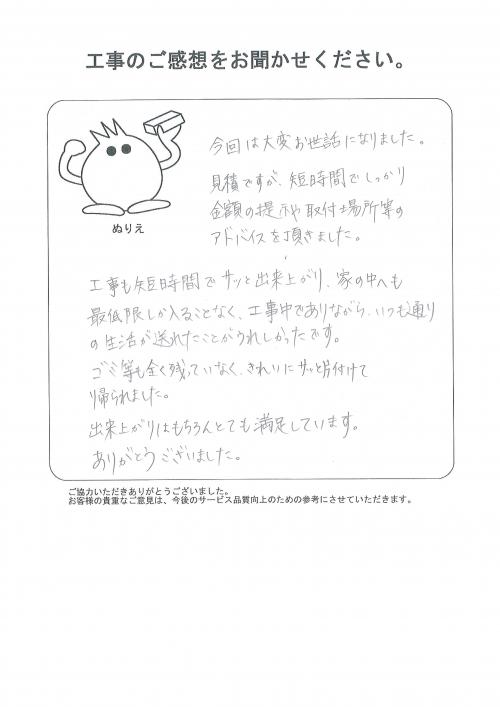 工事のご感想をお聞かせください。
今回は大変お世話になりました。
見積ですが、短時間でしっかり
金額の提示や取付場所等の
アドバイスを頂きました。
ぬりえ
工事も短時間でサッと出来上がり、家の中へも
最低限しか入ることなく、工事中でありながら、いつも通り
の生活が送れたことがうれしかったです。
ゴミ等も全く残っていなく、きれいにサッと片付けて
帰られました。
出来上がりはもちろんとても満足しています。
ありがとうございました。
ご協力いただきありがとうございました。
お客様の貴重なご意見は、今後のサービス品質向上のための参考にさせていただきます。